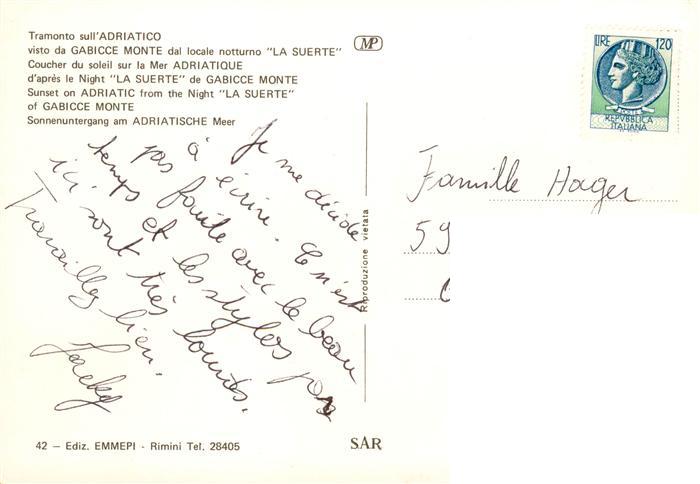 Tramonto sull'ADRIATICO
visto da GABICCE MONTE dal locale notturno "LA SUERTE"
Coucher du soleil sur la Mer ADRIATIQUE
d'après le Night "LA SUERTE" de GABICCE MONTE
Sunset on ADRIATIC from the Night "LA SUERTE"
of GABICCE MONTE
Sonnenuntergang am ADRIATISCHE Meer
MP
Je me décide
à écrire. Ce n'est
pas faute avec le beau
temps et les stylos
ici sont très lourds.
Travaillez bien.
Jacky
Riproduzione vietata
42 — Ediz. EMMEPI - Rimini Tel. 28405
SAR
LIRE 120
POSTE
REPVBBLICA
ITALIANA
Famille Hager
59